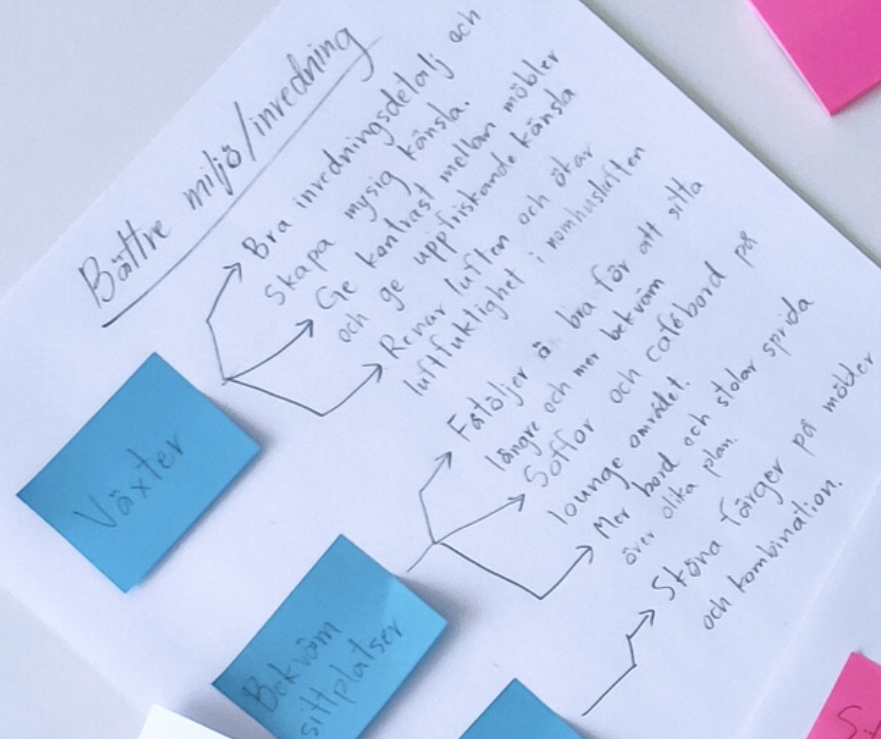 Bättre miljö/inredning
Växter
Bra inredningsdetalj och
skapa mysig känsla.
Ge kontrast mellan möbler
och ge uppfriskande känsla
Renar luften och ökar
luftfuktighet i inomhusluften
Bekväm
sittplatser
Fåtöljer är bra för att sitta
längre och mer bekväm
Soffor och cafébord på
lounge området.
Mer bord och stolar sprida
över olika plan.
Sköna färger på möbler
och kombination.